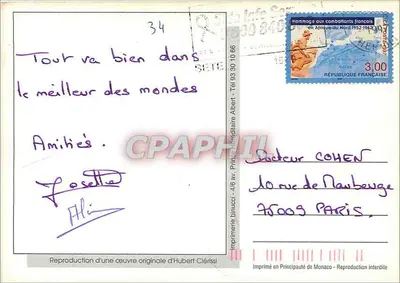 34
Tout va bien dans
le meilleur des mondes
Amitiés.
Josette
Alain
CPAPHIL
SETE
Hommage aux combattants français
en Afrique du Nord 1952-1962
3,00
RÉPUBLIQUE FRANÇAISE
Docteur COHEN
10 rue de Maubeuge
75009 PARIS.
Imprimerie Bourcci - 4/6 av. Prince Héréditaire Albert - Tél 93 30 10 66
Reproduction d'une œuvre originale d'Hubert Clérissi
Imprimé en Principauté de Monaco - Reproduction interdite